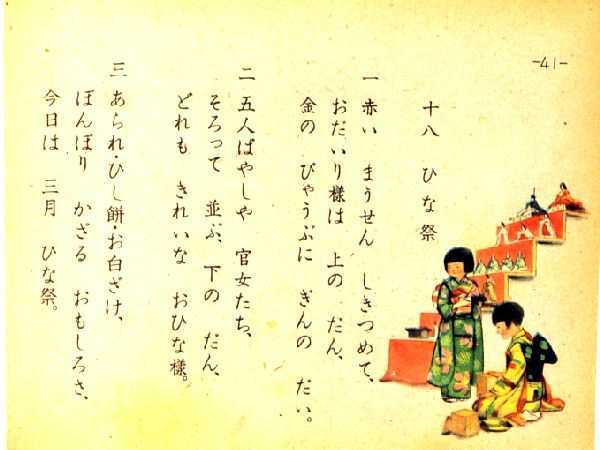 -41-
十八 ひな祭
一 赤い まうせん しきつめて、
おだいり様は 上の だん、
金の びゃうぶに ぎんの だい。
二 五人ばやしや 官女たち、
そろって 並ぶ、下の だん、
どれも きれいな おひな様。
三 あられ・ひし餅・お白ざけ、
ぼんぼり かざる おもしろさ、
今日は 三月 ひな祭。